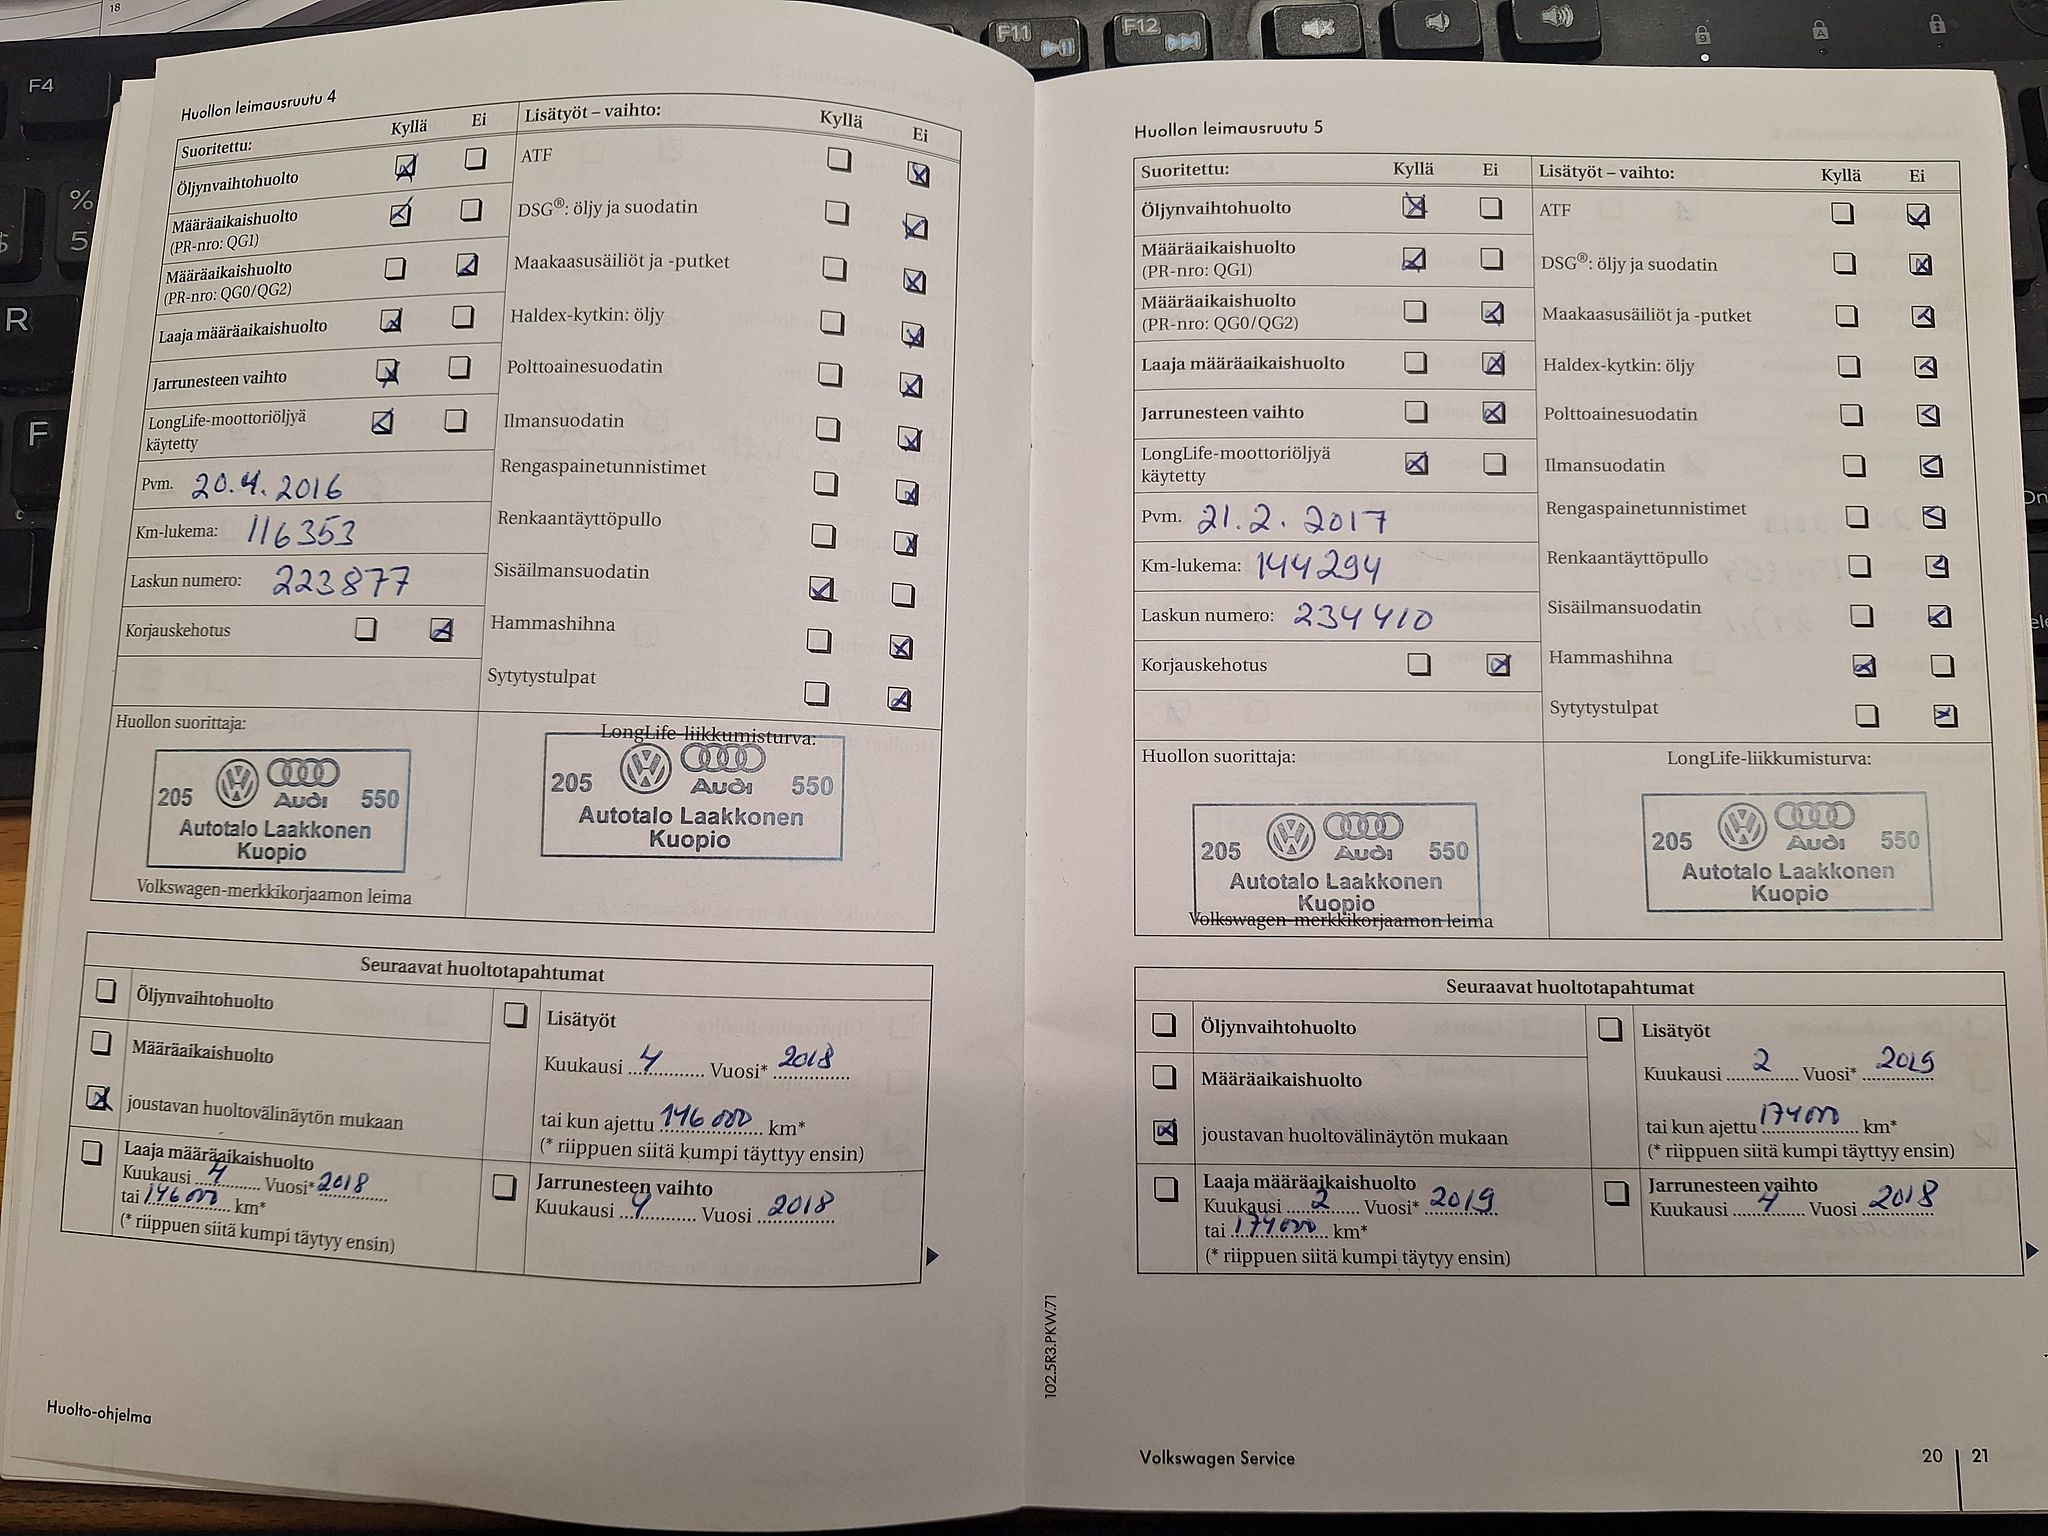 18
F4
F11
F12
%
5
$
R
F
9
A
Huollon leimausruutu 4
Suoritettu: Kyllä Ei
Öljynvaihtohuolto
Määräaikaishuolto
(PR-nro: QG1)
Määräaikaishuolto
(PR-nro: QG0/QG2)
Laaja määräaikaishuolto
Jarrunesteen vaihto
LongLife-moottoriöljyä
käytetty
Pvm. 20.4.2016
Km-lukema: 116353
Laskun numero: 223877
Korjauskehotus
Lisätyöt – vaihto: Kyllä Ei
ATF
DSG®: öljy ja suodatin
Maakaasusäiliöt ja -putket
Haldex-kytkin: öljy
Polttoainesuodatin
Ilmansuodatin
Rengaspainetunnistimet
Renkaantäyttöpullo
Sisäilmansuodatin
Hammashihna
Sytytystulpat
Huollon suorittaja:
205 Audi 550
Autotalo Laakkonen
Kuopio
Volkswagen-merkkikorjaamon leima
LongLife-liikkumisturva:
205 Audi 550
Autotalo Laakkonen
Kuopio
Seuraavat huoltotapahtumat
Öljynvaihtohuolto
Määräaikaishuolto
joustavan huoltovälinäytön mukaan
Laaja määräaikaishuolto
Kuukausi 4 Vuosi* 2018
tai 146000 km*
(* riippuen siitä kumpi täytyy ensin)
Lisätyöt
Kuukausi 4 Vuosi* 2018
tai kun ajettu 146000 km*
(* riippuen siitä kumpi täyttyy ensin)
Jarrunesteen vaihto
Kuukausi 4 Vuosi 2018
Huolto-ohjelma
Huollon leimausruutu 5
Suoritettu: Kyllä Ei
Öljynvaihtohuolto
Määräaikaishuolto
(PR-nro: QG1)
Määräaikaishuolto
(PR-nro: QG0/QG2)
Laaja määräaikaishuolto
Jarrunesteen vaihto
LongLife-moottoriöljyä
käytetty
Pvm. 21.2.2017
Km-lukema: 144294
Laskun numero: 234410
Korjauskehotus
Lisätyöt – vaihto: Kyllä Ei
ATF
DSG®: öljy ja suodatin
Maakaasusäiliöt ja -putket
Haldex-kytkin: öljy
Polttoainesuodatin
Ilmansuodatin
Rengaspainetunnistimet
Renkaantäyttöpullo
Sisäilmansuodatin
Hammashihna
Sytytystulpat
Huollon suorittaja:
205 Audi 550
Autotalo Laakkonen
Kuopio
Volkswagen-merkkikorjaamon leima
LongLife-liikkumisturva:
205 Audi 550
Autotalo Laakkonen
Kuopio
Seuraavat huoltotapahtumat
Öljynvaihtohuolto
Määräaikaishuolto
joustavan huoltovälinäytön mukaan
Laaja määräaikaishuolto
Kuukausi 2 Vuosi* 2019
tai 174000 km*
(* riippuen siitä kumpi täytyy ensin)
Lisätyöt
Kuukausi 2 Vuosi* 2019
tai kun ajettu 174000 km*
(* riippuen siitä kumpi täyttyy ensin)
Jarrunesteen vaihto
Kuukausi 4 Vuosi 2018
102.5R3.PKW.71
Volkswagen Service
20 21